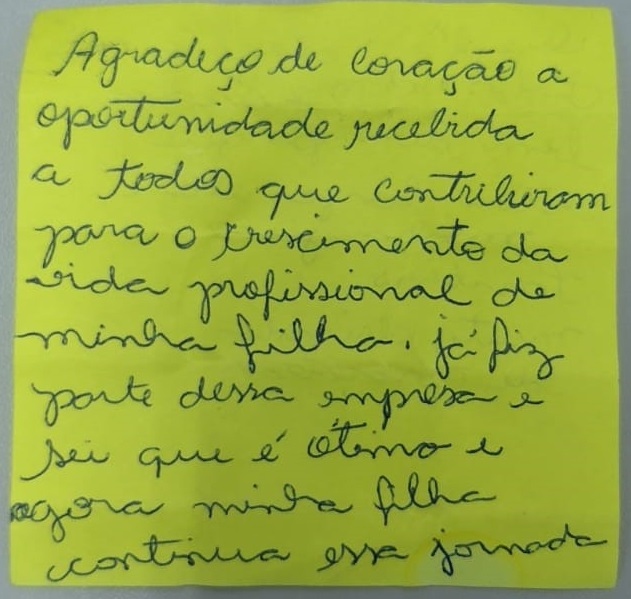 Agradeço de coração a
oportunidade recebida
a todos que contribuiram
para o crescimento da
vida profissional de
minha filha. já fiz
parte dessa empresa e
sei que é ótimo e
agora minha filha
continua essa jornada